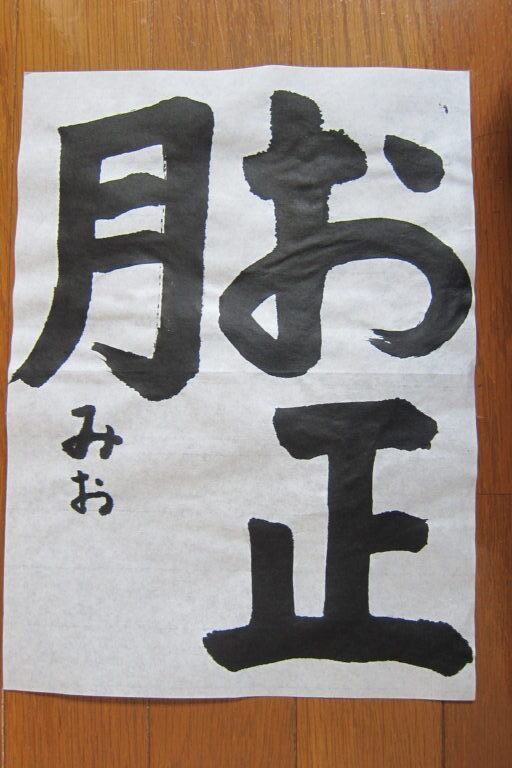 お正
月
みお